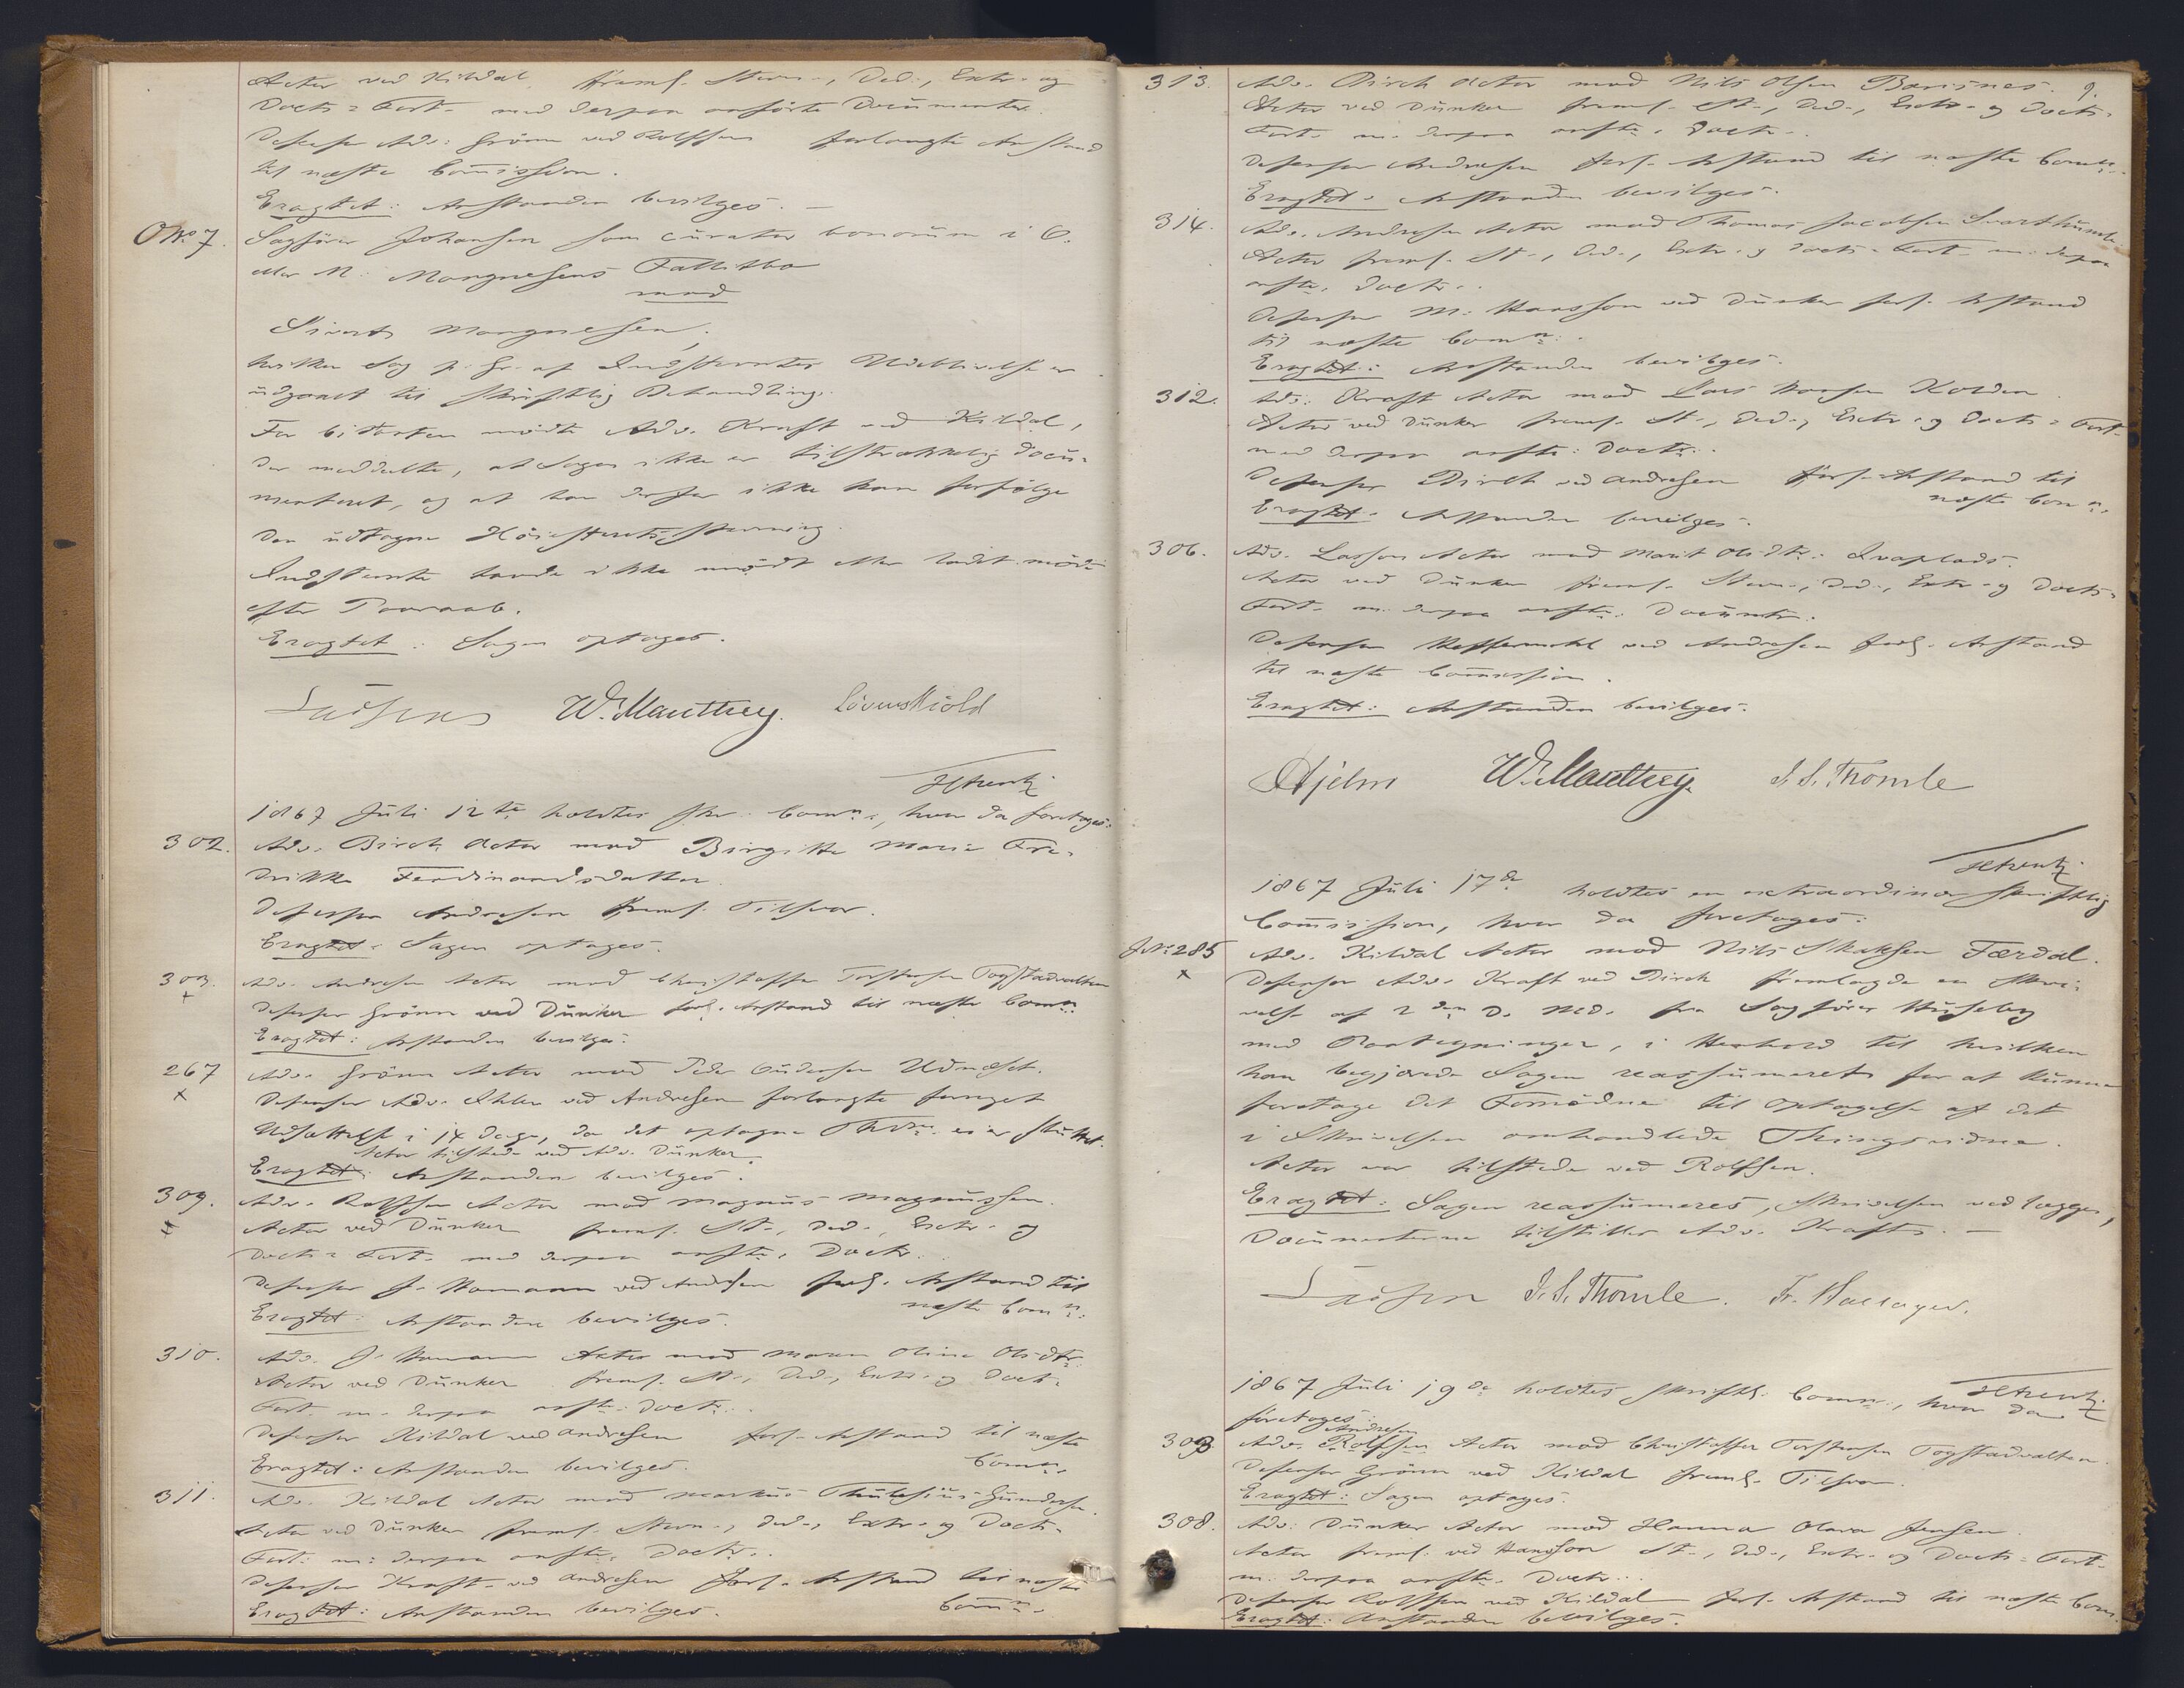 Actor ved Kildal freml. Stevn-, Ded-, Extr- og
Docts= Fort- med derpaa anførte Documenter.
Defensor Adv: Grönn ved Rolffsen forlangte Anstand
til næste Commission.
Eragtet: Anstanden bevilges. —
O No 7. Sagförer Johansen som curator bonorum i O.
eller M: Mangnesens Fallitbo
mod
Sivert Mangnesen,
hvilken Sag p. Gr. af Indstevntes Udeblivelse er
udgaaet til skriftlig Behandling.
For Citanten mødte Adv. Kraft ved Kildal,
der meddelte, at Sagen ikke er tilstrækkelig docu-
menteret, og at han derfor ikke kan forfølge
den udtagne Höiesteretsstevning.
Indstevnte havde ikke mødt eller ladet møde
efter Paaraab.
Eragtet: Sagen optages.
Lasson W. Manthey. Løvenskiold
1867 Juli 12te holdtes skr. Comn:, hvor da foretoges:
302. Adv. Birch Actor mod Birgitte Marie Fre-
drikke Ferdinandsdatter.
Defensor Andresen freml. Tilsvar.
Eragtet: Sagen optages.
303. Adv. Andresen Actor mod Christoffer Torstensen Togstadvalten
Defensor Grönn ved Dunker forl. Anstand til næste Comn:
Eragtet: Anstanden bevilges.
267 Adv. Grönn Actor mod Peder Gudersen Udnæseth.
Defensor Adv. Ihlen ved Andresen forlangte forøget
Udsættelse i 14 Dage, da det optagne Thvn. ei er sluttet.
Actor tilstede ved Adv. Dunker.
Eragtet: Anstanden bevilges.
309. Adv. Rolffsen Actor mod Magnus Magnussen.
Actor ved Dunker freml. St-, Ded-, Extr- og
Docts= Fort- med derpaa anfte. Doctr.
Defensor J. Homann ved Andresen forl. Anstand til
næste Comn:
Eragtet: Anstanden bevilges.
310. Adv. J. Homann Actor mod Maren Oline Olsdtr:
Actor ved Dunker freml. St-, Ded-, Extr- og Doct-
Fort- m. derpaa anfte: Doctr.
Defensor Kildal ved Andresen forl. Anstand til næste
Comn.
Eragtet: Anstanden bevilges.
311. Adv. Kildal Actor mod Markus Gundersen.
Actor ved Dunker freml. Stevn-, Ded-, Extr- og Docts-
Fort: m: derpaa anfte, Doctr.
Defensor Kraft ved Andresen forl. Anstand til næste
Comn.
Eragtet: Anstanden bevilges.
9.
313. Adv. Birch Actor mod Nils Olsen Barsnes.
Actor ved Dunker freml. St-, Ded-, Extr- og Docts-
Fort- m. derpaa anfte. Doctr.
Defensor Andresen forl. Anstand til næste Comn:
Eragtet: Anstanden bevilges.
314. Adv. Andresen Actor mod Thomas Jacobsen
Actor freml. St-, Ded-, Extr- og Docts- Fort- m: derpaa
anfte. Doctr.
Defensor M. Hansson ved Dunker forl. Anstand
til næste Comn:
Eragtet: Anstanden bevilges.
312. Adv. Kraft Actor mod Lars Kolden.
Actor ved Dunker freml. St-, Ded-, Extr- og Docts- Fort-
med derpaa anfte: Doctr.
Defensor Birch ved Andresen forl. Anstand til
næste Comn.
Eragtet: Anstanden bevilges.
306. Adv. Lasson Actor mod Marit Olsdtr:
Actor ved Dunker freml. Stevn-, Ded-, Extr- og Docts-
Fort- m. derpaa anfte. Documtr.
Defensor Heffermehl ved Andresen forl. Anstand
til næste Commission.
Eragtet: Anstanden bevilges.
Hjelm W. Manthey. J. S. Thomle
1867 Juli 17de holdtes en extraordinær skriftlig
Commission, hvor da foretoges:
J No 285 Adv. Kildal Actor mod Nils Færdal.
Defensor Adv. Kraft ved Birch fremlagde en Skri-
velse af 2den D. Md. fra Sagfører Huseby
med Paategninger, i Henhold til hvilken
han begjærede Sagen reassumeret for at kunne
foretage det Fornødne til Optagelse af det
i Skrivelsen omhandlede Thingsvidne.
Actor var tilstede ved Rolffsen.
Eragtet: Sagen reassumeres, Skrivelsen vedlægges,
Documenterne tilstilles Adv. Kraft. —
Lasson J. S. Thomle. Fr. Hallager.
1867 Juli 19de holdtes skriftl. Comn:, hvor da
foretoges:
Andresen
303. Adv. Rolffsen Actor mod Christoffer Torstensen Togstadvalten.
Defensor Grönn ved Kildal freml. Tilsvar.
Eragtet: Sagen optages.
308. Adv: Dunker Actor mod Hanna Olava Jensen.
Actor freml. ved Hansson St-, Ded-, Extr- og Docts- Fort-
m. derpaa anfte. Doctr.
Defensor Rolffsen ved Kildal forl. Anstand til næste Com.
Eragtet: Anstanden bevilges.